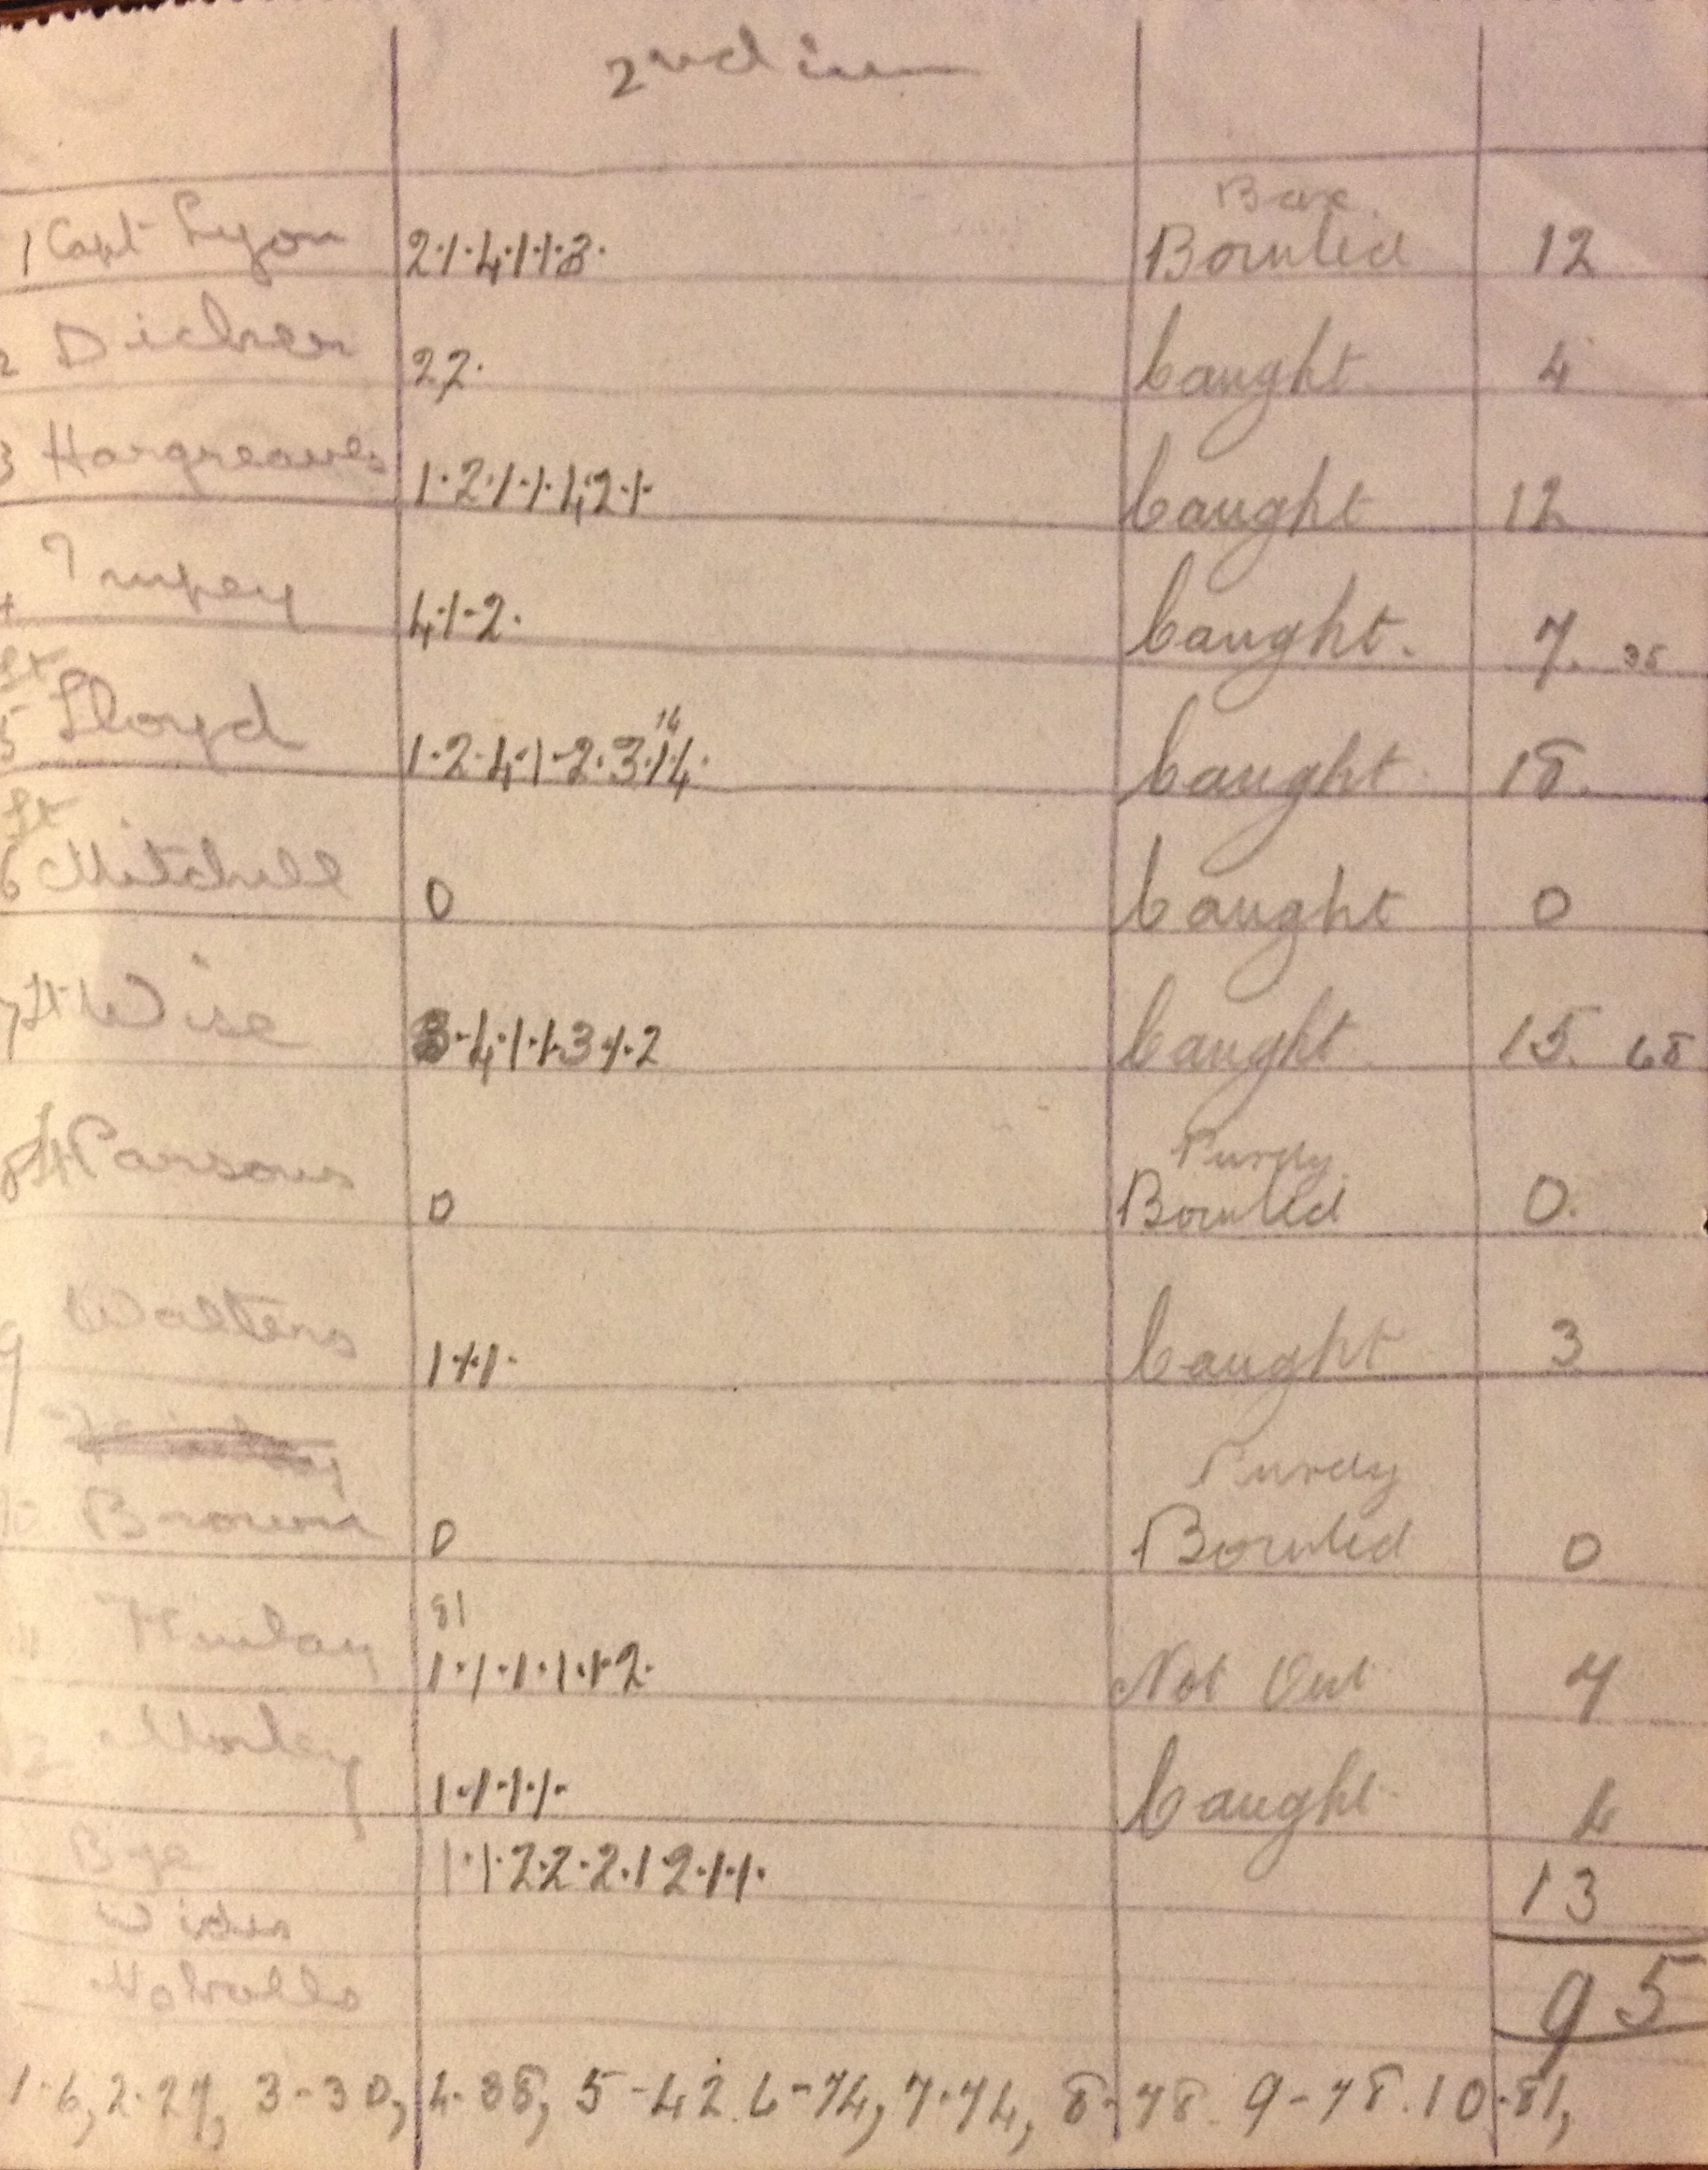 2nd inn
Bax.
1 Capt Lyon 2·1·4·1·1·3· Bowled 12
2 22· Caught 4
3 Hargreaves 1·2·1·1·4·2·1· Caught 12
4 4·1·2· Caught. 7. 35
Lt
14
5 Lloyd 1·2·4·1·2·3·14· Caught 18.
Lt
6 Mitchell 0 Caught 0
7 Lt Wise 3·4·1·1·3·1·2 Caught 15. 68
Purdy
8 Lt Parsons 0 Bowled 0.
9 Walters 1·1·1· Caught 3
Purdy
10 Brown 0 Bowled 0
81
11 1·1·1·1·1·2· Not Out 7
12 Morley 1·1·1·1· Caught 4
Bye 1·1·2·2·2·1·2·1·1· 13
Wides
No balls 95
1-6, 2-27, 3-30, 4-38, 5-42. 6-74, 7-74, 8-78. 9-78. 10-81,